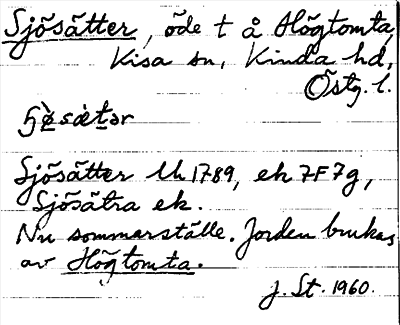 Sjösätter, öde t å Högtomta
Kisa sn, Kinda hd,
Östg. l.
Sjösätter lh 1789, ek 7F7g,
Sjösätra ek.
Nu sommarställe. Jorden brukas
av Högtomta.
J. St. 1960.